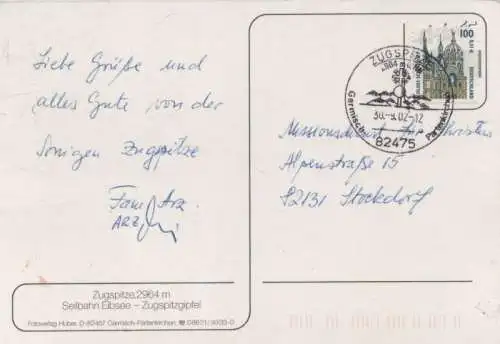 Liebe Grüße und
alles Gute von der
Sonigen Zugspitze
Fam. Arz
ARZ
Zugspitze, 2964 m
Seilbahn Eibsee – Zugspitzgipfel
Fotoverlag Huber, D-82467 Garmisch-Partenkirchen ☎ 08821/
100
0,51 €
DEUTSCHLAND
ZUGSPITZE
2964 m
30.-9.02-12
Garmisch-Partenkirchen
82475
Missionsdienst für Christus
Alpenstraße 15
82131 Stockdorf